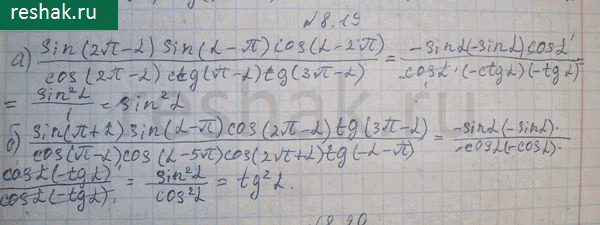 reshak.ru
№8.19
а) sin(2π-α) sin(α-π) cos(α-2π) / cos(2π-α) ctg(π-α) tg(3π-α) = -sinα(-sinα) cosα / cosα·(-ctgα)(-tgα) =
= sin²α / 1 = sin²α
б) sin(π+α) sin(α-π) cos(2π-α) tg(3π-α) / cos(π-α) cos(α-5π) cos(2π+α) tg(-α-π) = -sinα(-sinα)· / -cosα(-cosα)·
cosα(-tgα) / cosα(-tgα) = sin²α / cos²α = tg²α.
reshak.ru